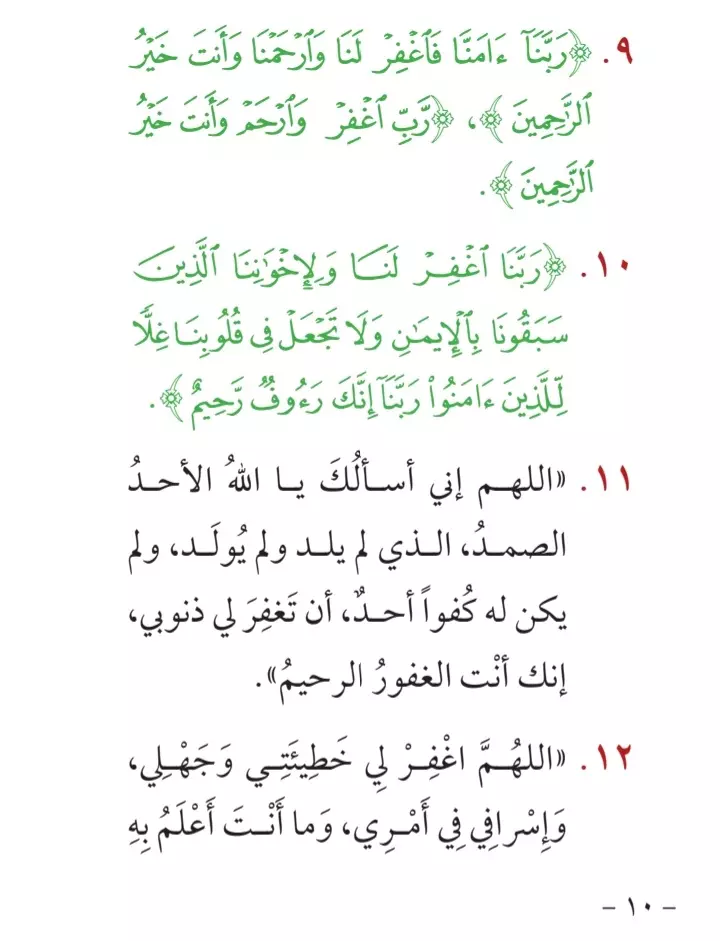 ٩. ﴿رَبَّنَآ ءَامَنَّا فَٱغۡفِرۡ لَنَا وَٱرۡحَمۡنَا وَأَنتَ خَيۡرُ
ٱلرَّٰحِمِينَ﴾، ﴿رَّبِّ ٱغۡفِرۡ وَٱرۡحَمۡ وَأَنتَ خَيۡرُ
ٱلرَّٰحِمِينَ﴾.
١٠. ﴿رَبَّنَا ٱغۡفِرۡ لَنَا وَلِإِخۡوَٰنِنَا ٱلَّذِينَ
سَبَقُونَا بِٱلۡإِيمَٰنِ وَلَا تَجۡعَلۡ فِي قُلُوبِنَا غِلّٗا
لِّلَّذِينَ ءَامَنُواْ رَبَّنَآ إِنَّكَ رَءُوفٞ رَّحِيمٌ﴾.
١١. «اللهم إني أسألُكَ يا اللهُ الأحدُ
الصمدُ، الذي لم يلد ولم يُولَد، ولم
يكن له كُفواً أحدٌ، أن تَغفِرَ لي ذنوبي،
إنك أنْت الغفورُ الرحيمُ».
١٢. «اللهُمَّ اغْفِرْ لِي خَطِيئَتِي وَجَهْلِي،
وَإِسْرافِي فِي أَمْرِي، وَما أَنْتَ أَعْلَمُ بِهِ
- ١٠ -